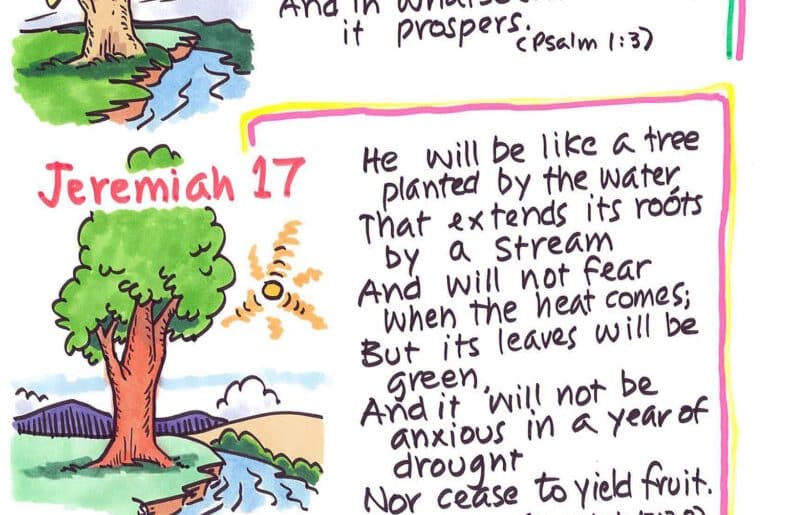 And in
it prospers.
(Psalm 1:3)
Jeremiah 17
He will be like a tree
planted by the water,
That extends its roots
by a stream
And will not fear
when the heat comes;
But its leaves will be
green,
And it will not be
anxious in a year of
drought
Nor cease to yield fruit.